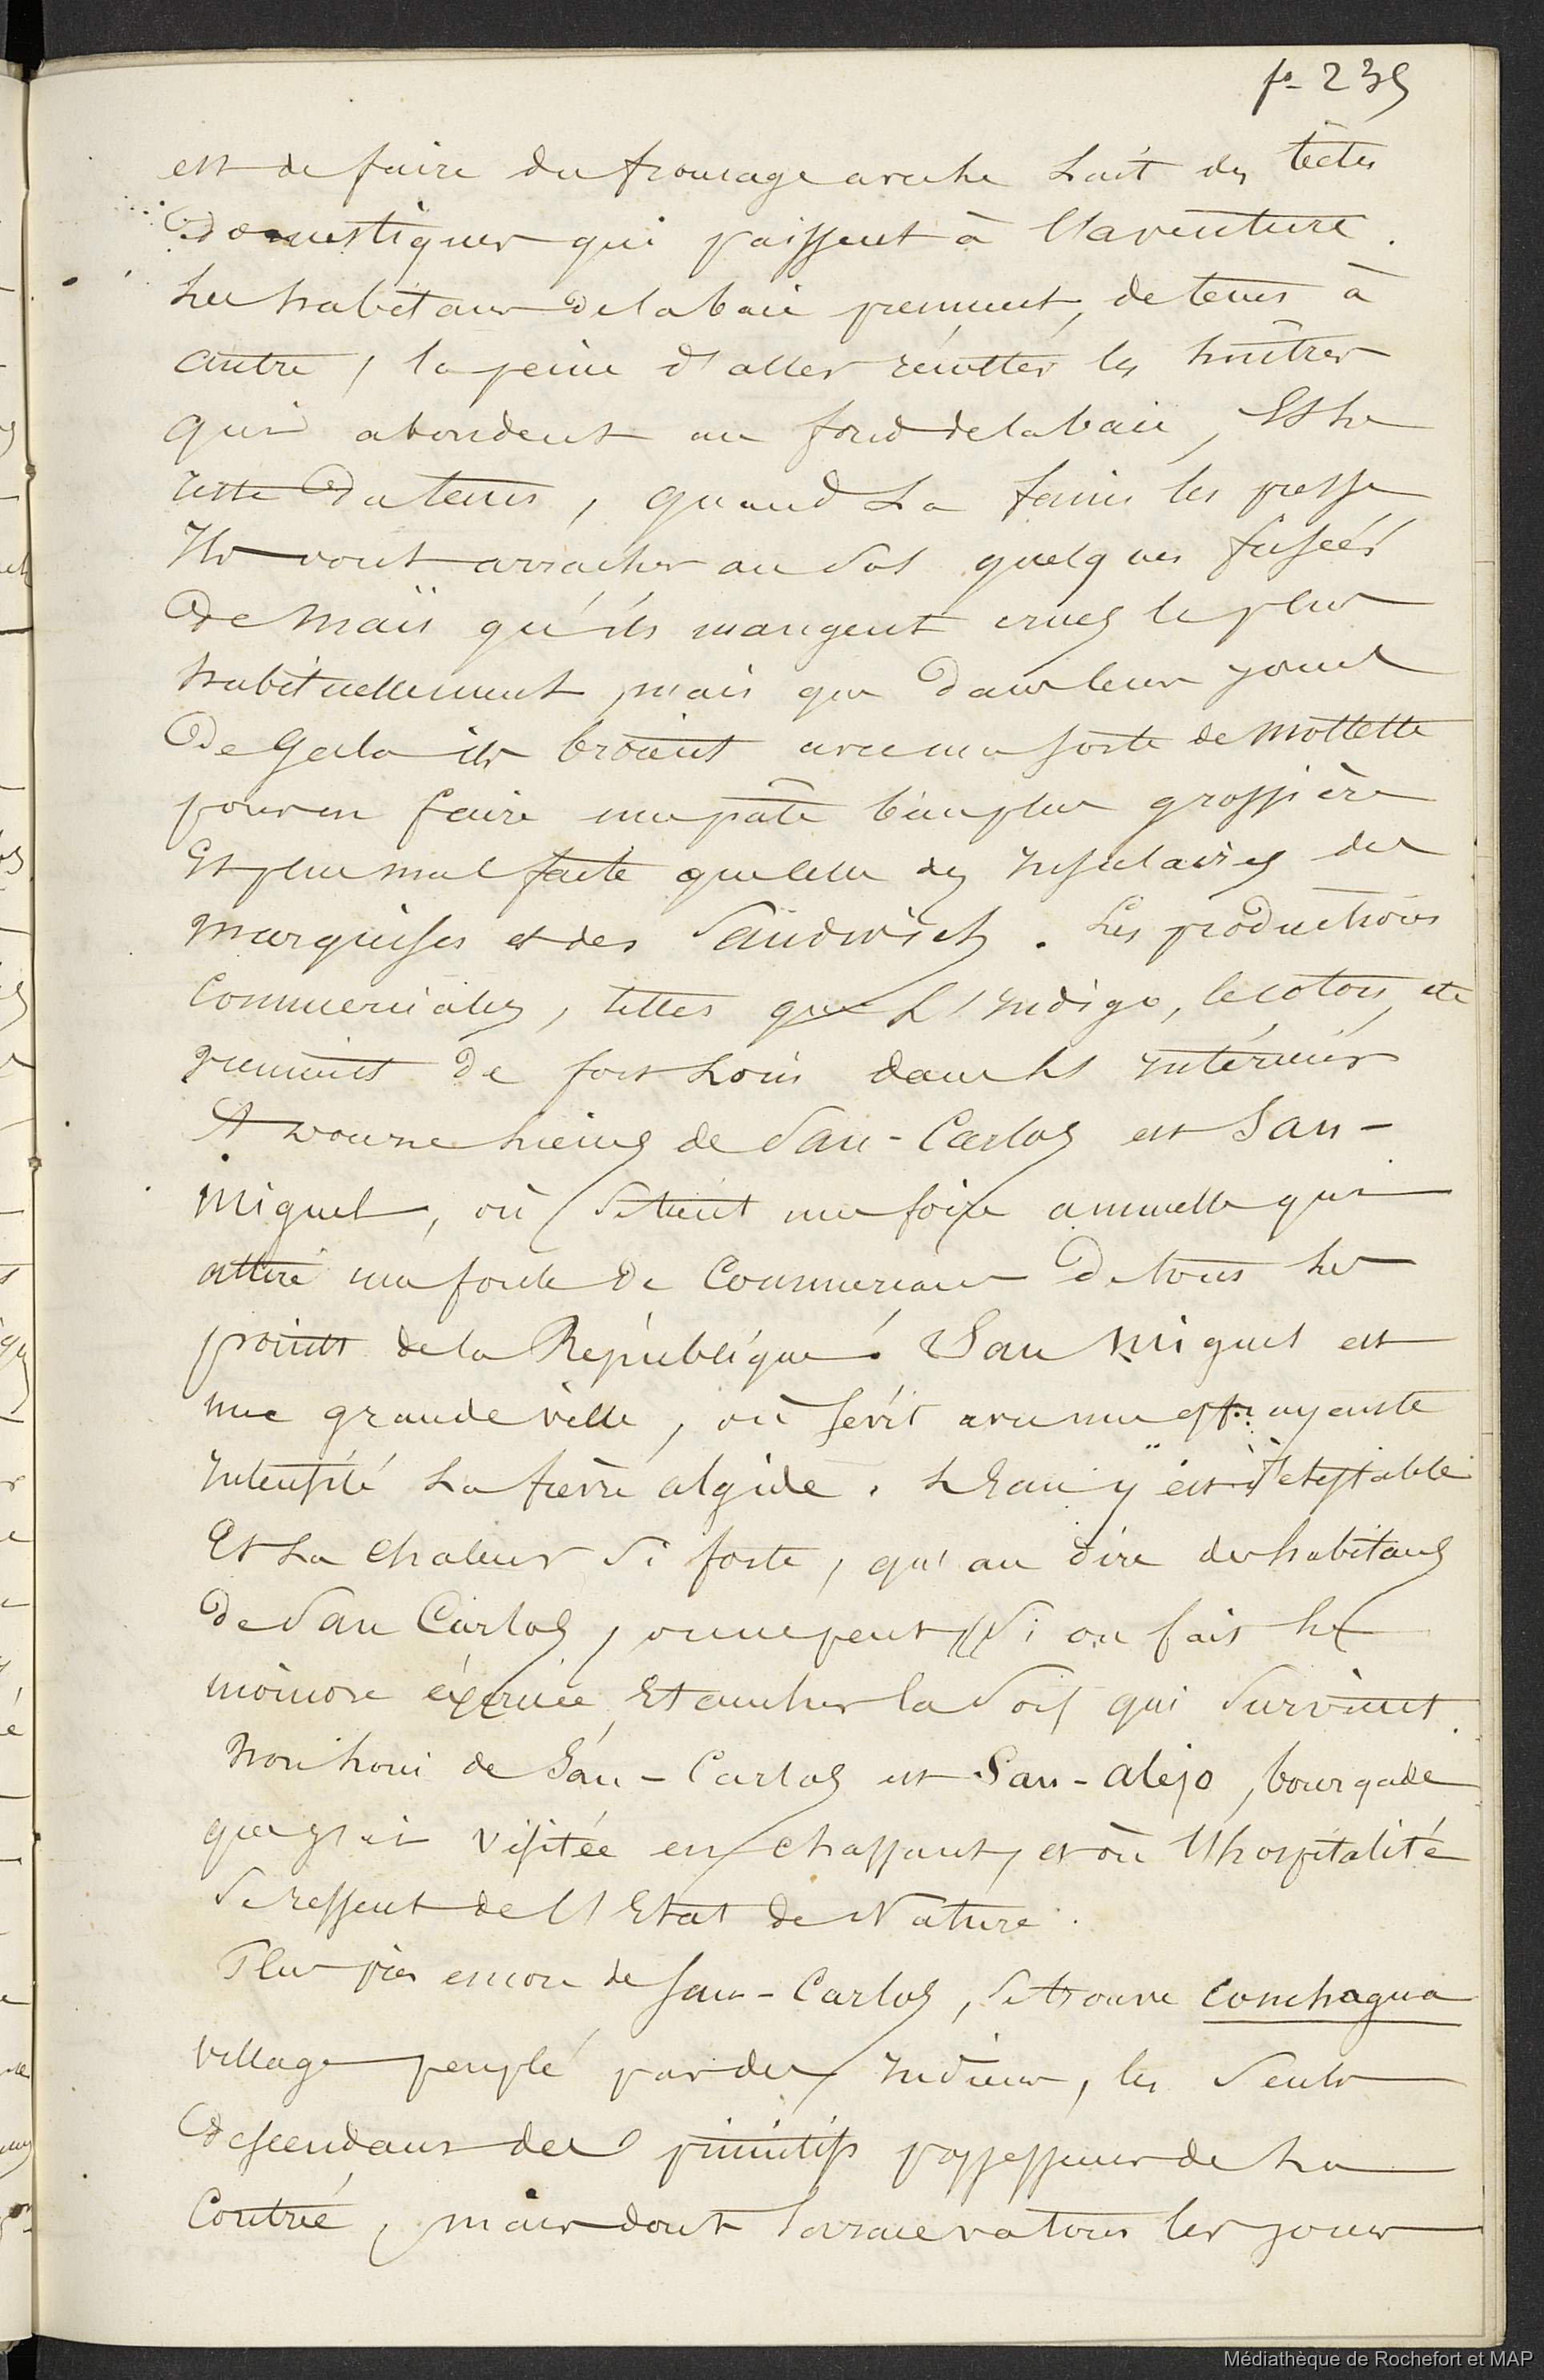 fo- 235
est de faire du fromage avec le Lait des têtes
Domestiques qui paissent à l'aventure.
Les habitans de la baie prennent, de tems à
autre, la peine d'aller récolter les huîtres
qui abondent au fond de la baie, Et le
reste du tems, quand La faim les presse
Ils vont arracher au Sol quelques fusées
De maïs qu'ils mangent crues le plus
habituellement, mais que dans leurs jours
De Gala ils broient avec une sorte de mollette
pour en faire une pâte bien plus grossière
Et plus mal faite que celle des Insulaires des
Marquises et des Sandwich. Les productions
Commerciales, telles que L'Indigo, le coton, etc
viennent de fort Loin dans les Intérieurs
A Lieues de San-Carlos est San-
Miguel, où Se tient une foire annuelle qui
attire une foule de Commerçans De tous les
points de la République. San Miguel est
une grande ville, où sévit avec une effrayante
Intensité La fièvre algide. L'Eau y est détestable
Et La chaleur Si forte, qu'au dire des habitans
De San Carlos, on ne peut, Si on fait le
moindre exercice, Etancher la Soif qui Survient.
Non loin de San-Carlos est San-Alejo, bourgade
que j'ai visitée en chassant, et où l'hospitalité
Se ressent de l'Etat de Nature.
Plus près encore de San-Carlos, Se trouve Conchagua
village peuplé par des Indiens, les Seuls
Descendans des primitifs possesseurs de La
Contrée, mais dont la race va tous les jours
Médiathèque de Rochefort et MAP